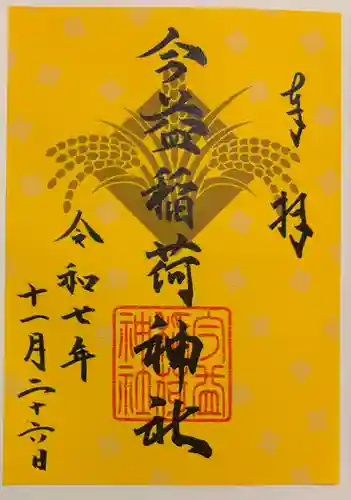 奉拝
今益稲荷神社
今益稲荷神社
令和七年
十一月二十六日